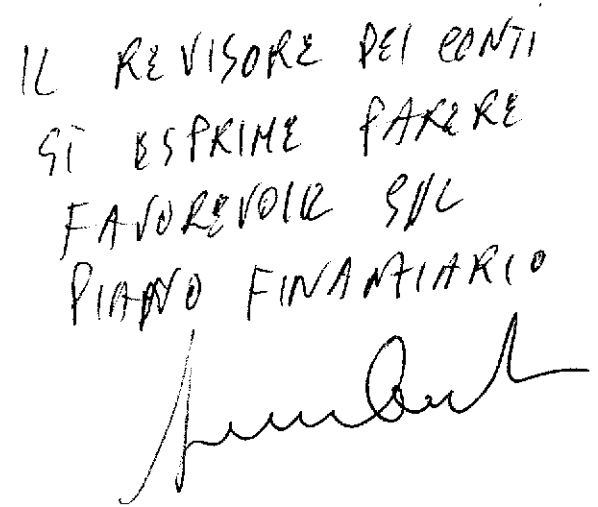 IL REVISORE DEI CONTI
SI ESPRIME PARERE
FAVOREVOLE SUL
PIANO FINANZIARIO